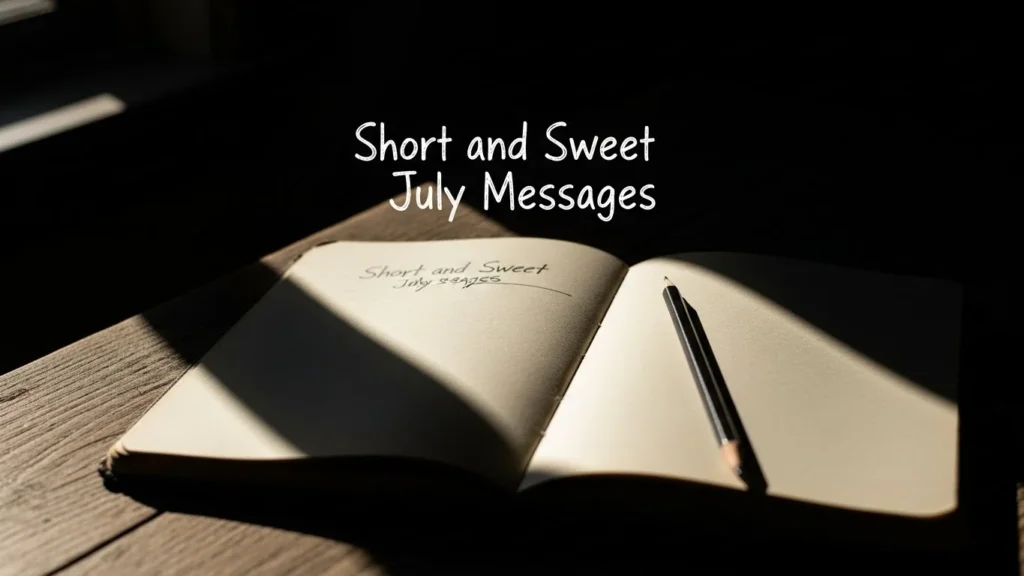 Short and Sweet
July Messages
Short and Sweet
July